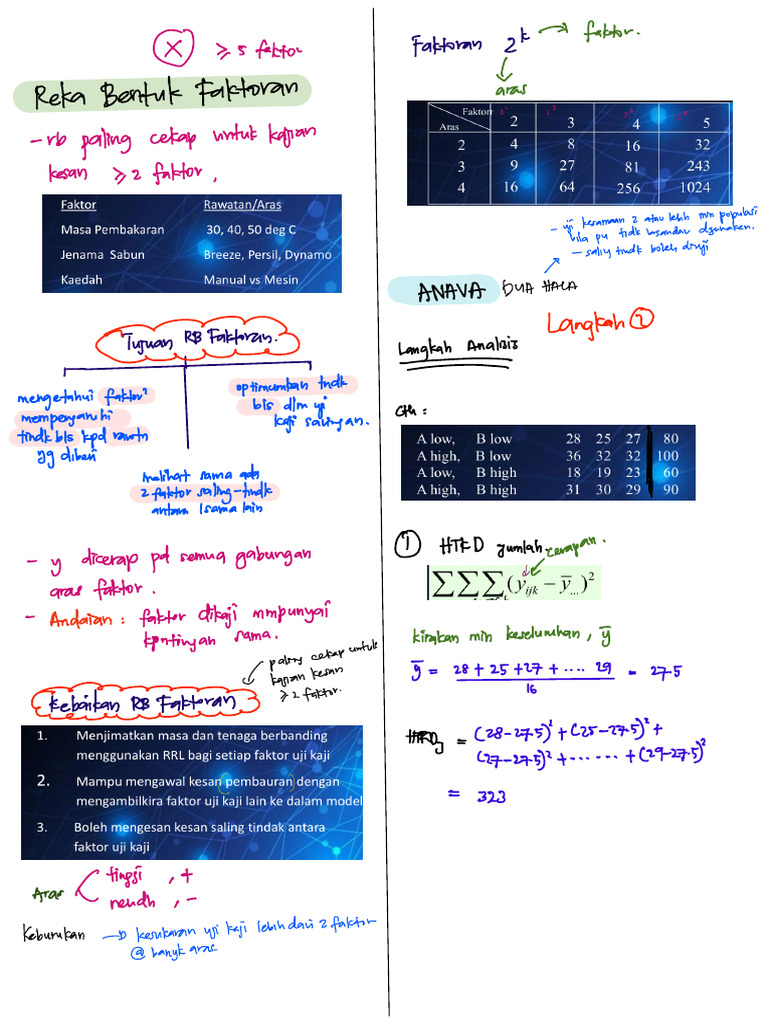 X ≥ 5 faktor
Reka Bentuk Faktoran
- rb paling cekap untuk kajian
kesan ≥ 2 faktor,
Faktor Rawatan/Aras
Masa Pembakaran 30, 40, 50 deg C
Jenama Sabun Breeze, Persil, Dynamo
Kaedah Manual vs Mesin
Tujuan RB Faktoran.
mengetahui faktor²
mempengaruhi
tindk bls kpd rawtn
yg diberi
melihat sama ada
2 faktor saling-tindk
antara 1 sama lain
optimumkan tndk
bls dlm uji
kaji saringan.
- y dicerap pd semua gabungan
aras faktor.
- Andaian : faktor dikaji mmpunyai
kptingan sama.
paling cekap untuk
kajian kesan
≥ 2 faktor.
Kebaikan RB Faktoran
1. Menjimatkan masa dan tenaga berbanding
menggunakan RRL bagi setiap faktor uji kaji
2. Mampu mengawal kesan pembauran dengan
mengambilkira faktor uji kaji lain ke dalam model
3. Boleh mengesan kesan saling tindak antara
faktor uji kaji
Aras
tinggi , +
rendh , -
Keburukan → kesukaran uji kaji lebih dari 2 faktor
@ banyk aras
Faktoran 2^k → faktor.
aras
Faktorr
Aras 2 3 4 5
2 4 8 16 32
3 9 27 81 243
4 16 64 256 1024
- uji kesamaan 2 atau lebih min populasi
bila pu tidk bersandar digunakan.
- saling tindk boleh diuji
ANAVA DUA HALA
Langkah ②
Langkah Analisis
Cth :
A low, B low 28 25 27 80
A high, B low 36 32 32 100
A low, B high 18 19 23 60
A high, B high 31 30 29 90
① HTKD jumlah cerapan.
∑∑∑(y_ijk − ȳ...)²
kirakan min keseluruhan, ȳ
ȳ = (28 + 25 + 27 + .... 29) / 16 = 27.5
= (28-27.5)² + (25-27.5)² +
(27-27.5)² + ...... + (29-27.5)²
= 323